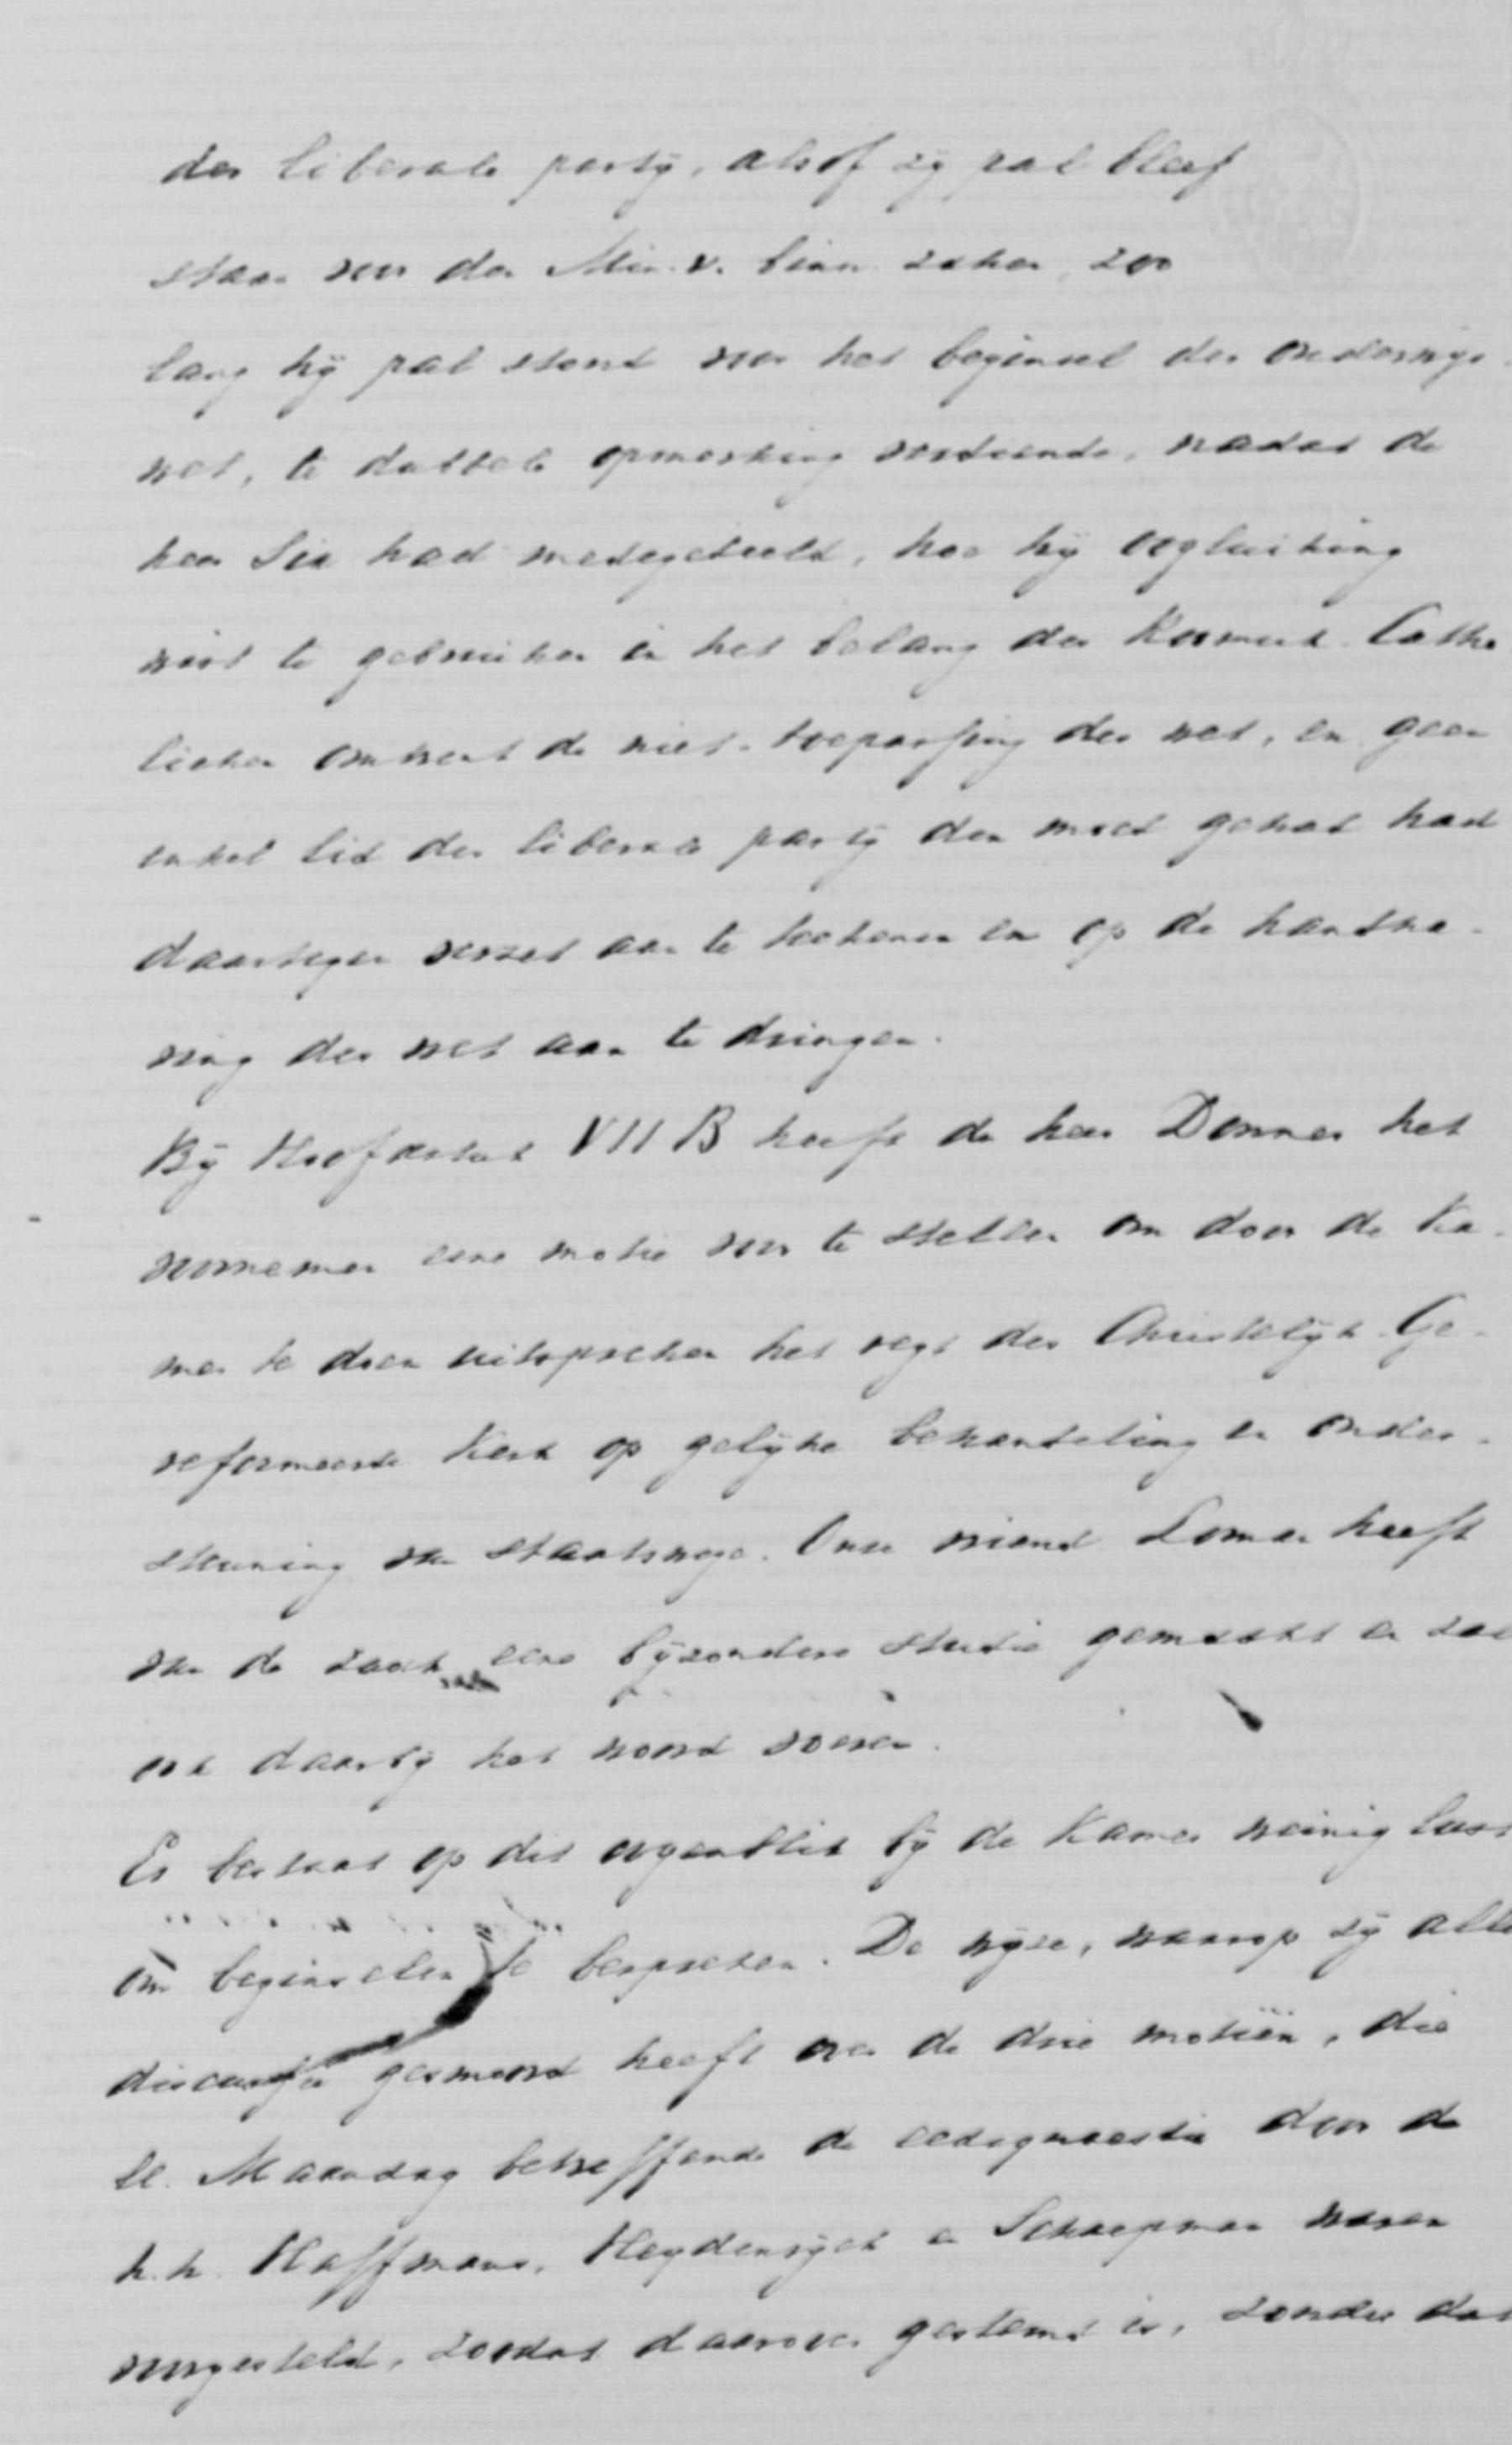 der liberale party, alsof zy pal bleef
staan voor den Min. v. binn. zaken, zoo
lang hy pal stond voor het beginsel der onderwys-
wet, te dubbele opmerking verdiende, nadat de
heer Six had medegedeeld, hoe hy oogluiking
wist te gebruiken in het belang der Roomsch Catho
lieken omtrent de niet-toepassing der wet, en geen
enkel lid der liberale party den moed gehad had
daartegen verzet aan te teekenen en op de handha-
ving der wet aan te dringen.
By Hoofdstuk VII B heeft de heer Donner het
voornemen eene motie voor te stellen om door de Ka-
mer te doen uitspreken het regt der Christelyk Ge-
reformeerde Kerk op gelyke behandeling en onder-
steuning van staatswege. Onze vriend Loman heeft
van de zaak eene byzondere studie gemaakt en zal
ook daarby het woord voeren.
Er bestaat op dit oogenblik by de Kamer weinig lust
om beginselen te bespreken. De wyze, waarop zy alle
discussie gesmoord heeft over de drie motiën, die
ll. Maandag betreffende de eedsquaestie door de
h.h. Haffmans, Heydenryck en Schaepman waren
voorgesteld, zoodat daarover gestemd is, zonder dat